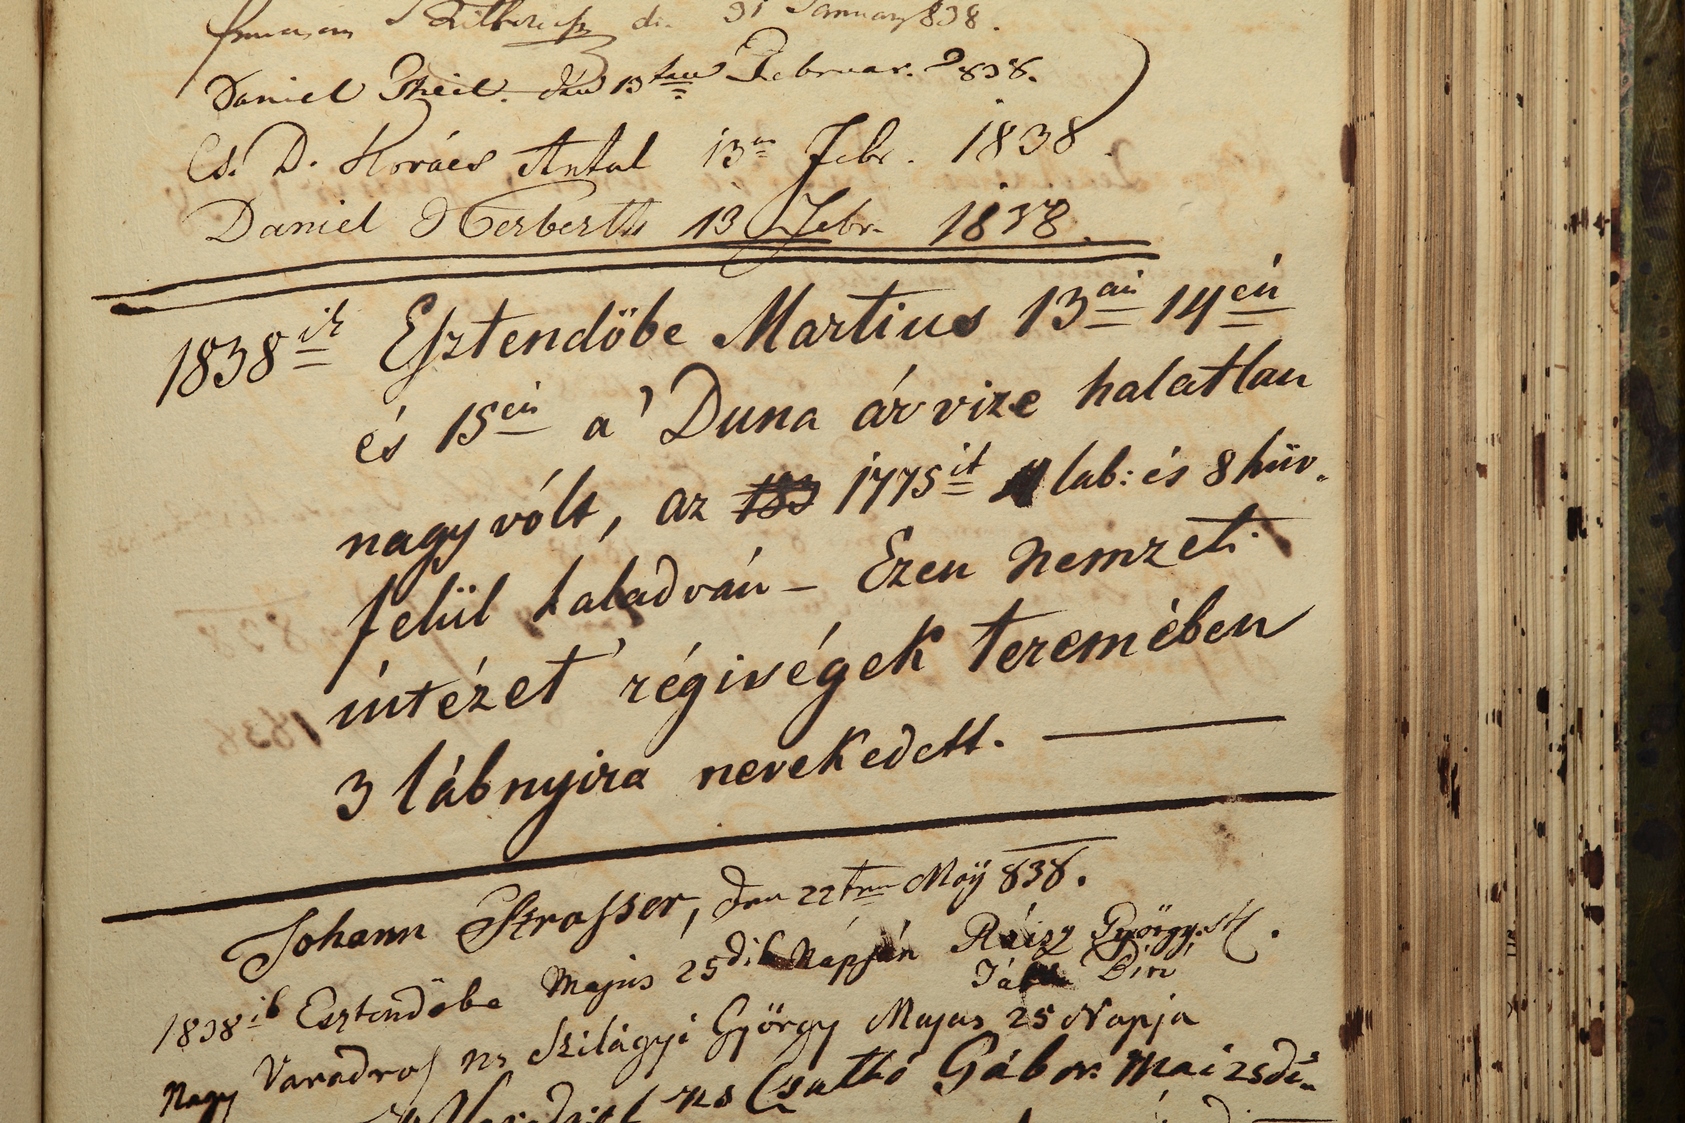 31 Januar 838.
Daniel Theil. den 13ten Februar. 838.
Cs. D. Kovács Antal 13n Febr. 1838.
Daniel Herberth 13 Febr. 1838.
1838ik Esztendöbe Martius 13án 14én
és 15én a' Duna árvize halatlan
nagy vólt, az 183 1775it 4 lab: és 8 hüv.
felül haladván – Ezen nemzeti
intézet régiségek teremében
3 lábnyira nevekedett. —
Johann Strasser, den 22ten Maÿ 838.
1838ik Esztendöbe Majus 25dik Napján Rácz György
Biri
Nagy Varadrol ns Szilágyi György Majus 25 Napja
ns Csatkó Gábor Mai 25dn